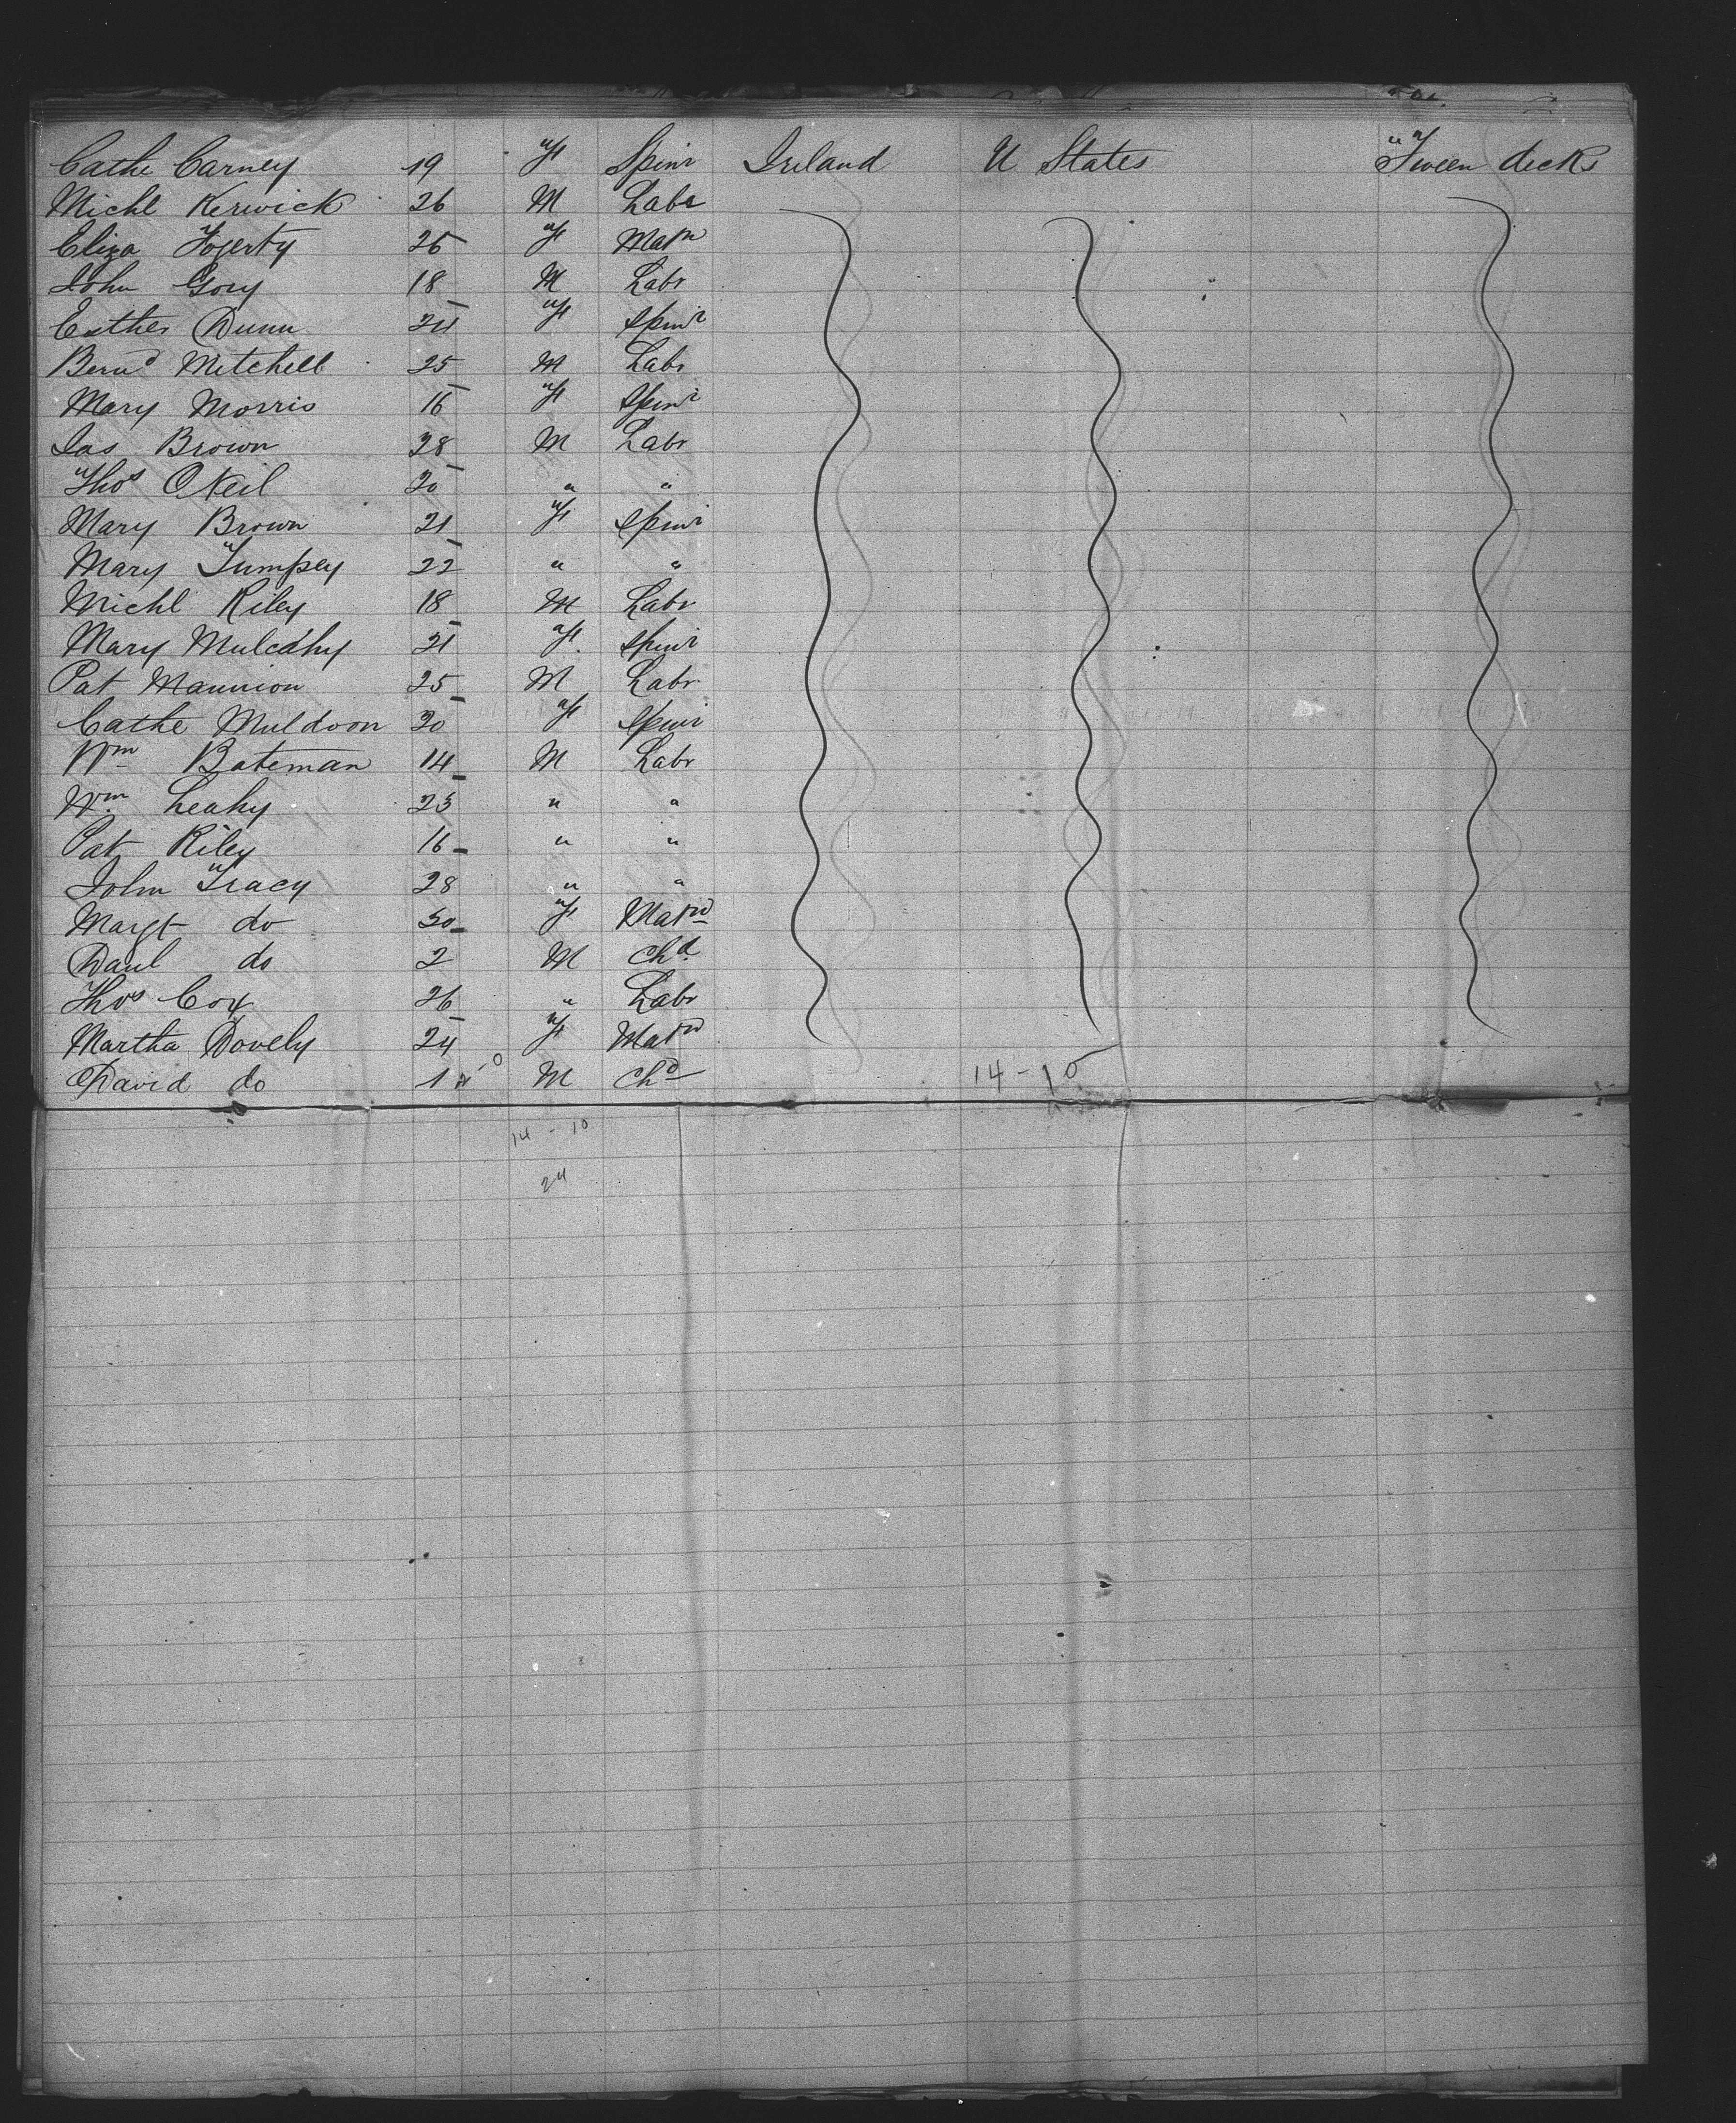 Cathe Carney 19 F Spinr Ireland U States Tween decks
Michl Kerwick 26 M Labr
Eliza Fogerty 25 F Matn
John Gory 18 M Labr
Esther Dunn 24 F Spinr
Bernd Mitchell 25 M Labr
Mary Morris 16 F Spinr
Jas Brown 28 M Labr
Thos ONeil 20 " "
Mary Brown 21 F Spinr
Mary Tumpsey 22 " "
Michl Riley 18 M Labr
Mary Mulcahy 21 F Spinr
Pat Mannion 25 M Labr
Cathe Muldoon 20 F Spinr
Wm Bateman 14 M Labr
Wm Leahy 23 " "
Pat Riley 16 " "
John Tracy 28 " "
Margt do 30 F Matn
Danl do 2 M Chd
Thos Cox 26 " Labr
Martha Dovely 24 F Matn
David do 1 M Chd 14-10
14 - 10
24